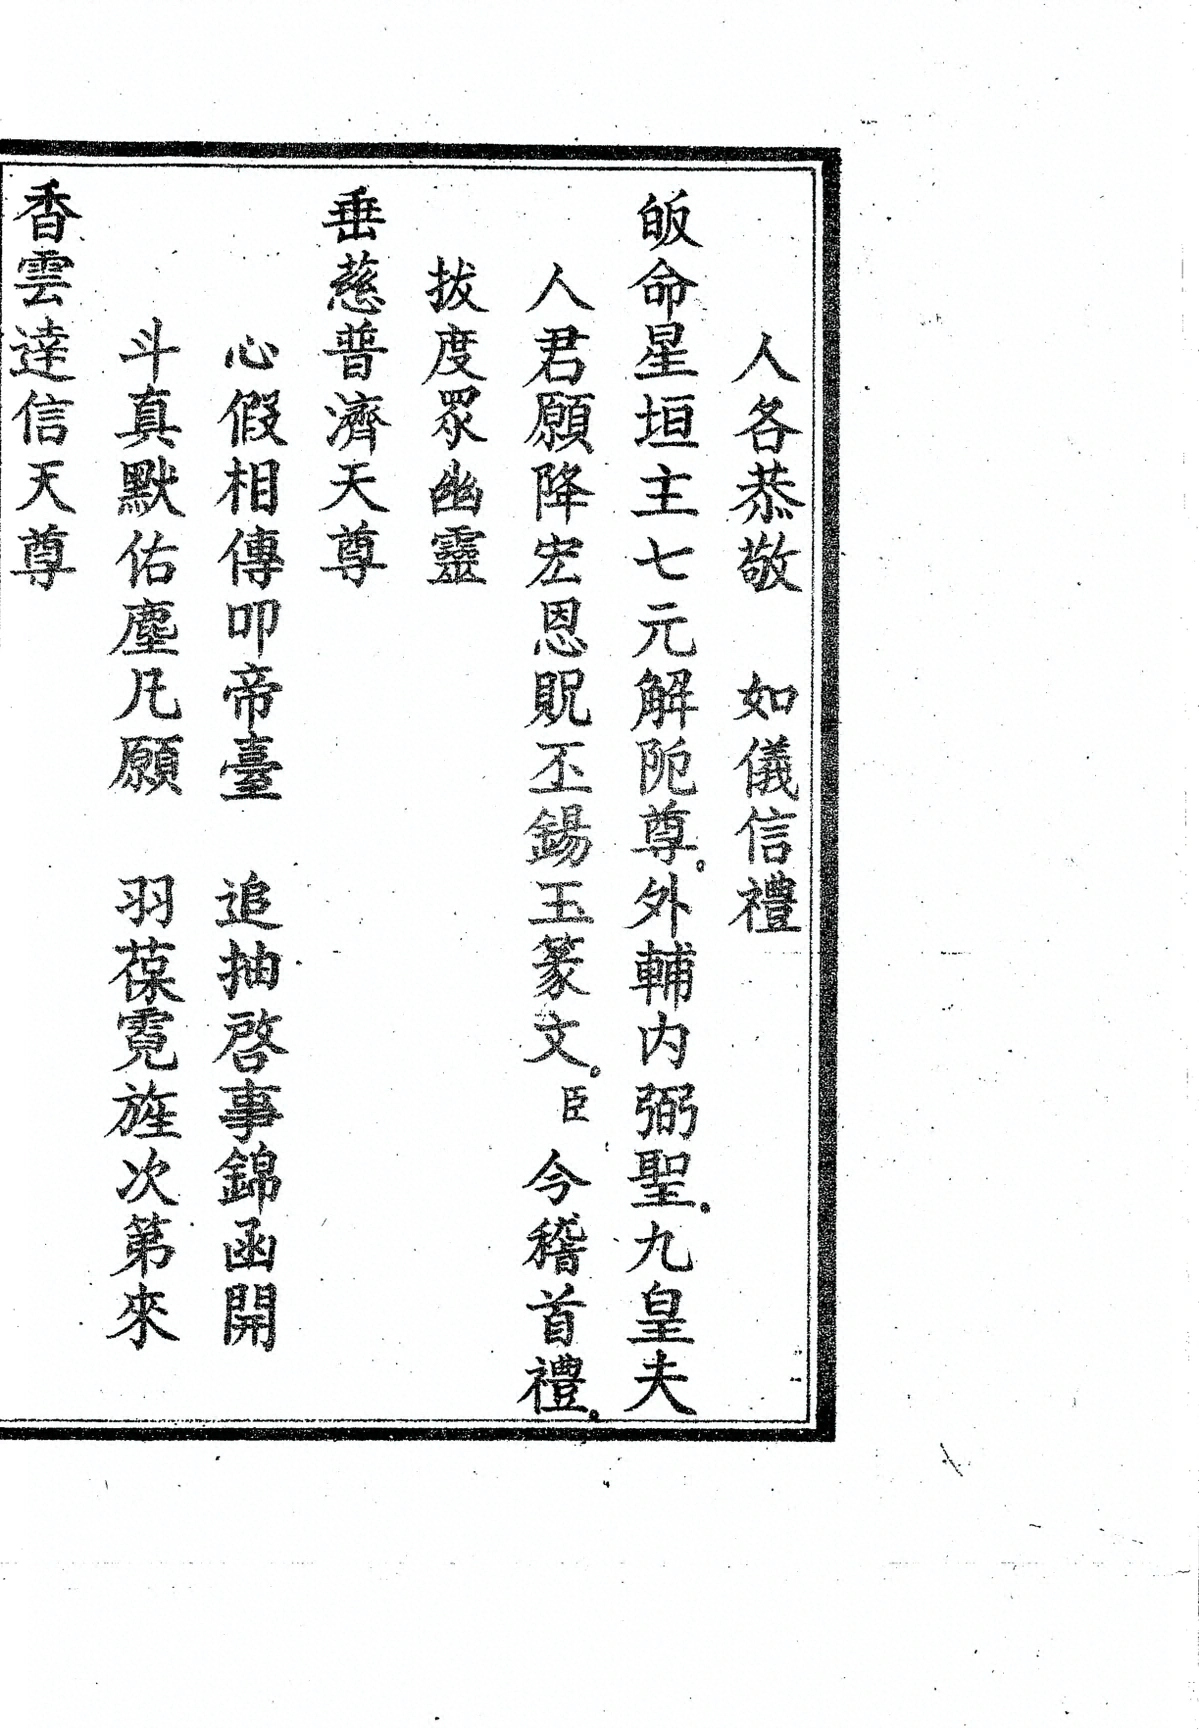 人各恭敬　如儀信禮
皈命星垣主七元解阨尊。外輔內弼聖。九皇夫
人君願降宏恩貺丕錫玉篆文。臣今稽首禮。
拔度眾幽靈
垂慈普濟天尊
心假相傳叩帝臺　追抽啓事錦函開
斗真默佑塵凡願　羽葆霓旌次第來
香雲達信天尊